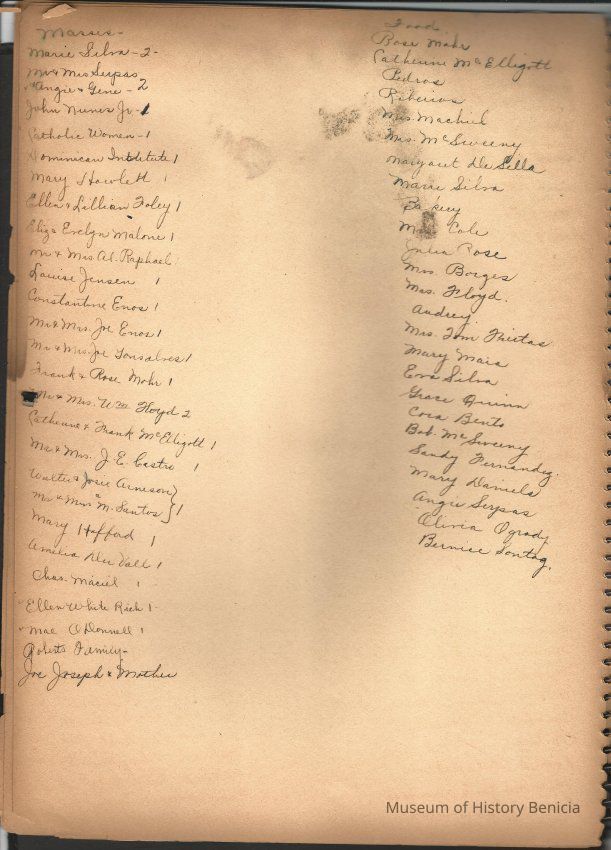 Masses-
Marie Silva - 2-
Mr & Mrs Serpas
Angie & Gene - 2
John Nunes Jr - 1
Catholic Women - 1
Dominican Institute 1
Mary Howlett 1
Ellen & Lillian Foley 1
Eliz & Evelyn Malone 1
Mr & Mrs Al. Raphael
Louise Jensen 1
Constantine Enos 1
Mr & Mrs. Joe Enos 1
Mr & Mrs. Joe Gonsalves 1
Frank & Rose Mohr 1
Mr & Mrs. Wm Floyd 2
Catherine & Frank McElligott 1
Mr. & Mrs. J. E. Castro 1
Walter & Josie Arneson }
Mr & Mrs M. Santos } 1
Mary Hafford 1
Amelia Du Vall 1
Chas. Maciel 1
Ellen White Rich 1-
Mae O'Donnell 1
Roberts Family-
Joe Joseph & Mother
Food.
Rose Mohr
Catherine McElligott
Pedros
Ribeiros
Mrs. Machud
Mrs. McSweeny
Margaret De Sella
Marie Silva
Bakery
Cole
Julia Rose
Mrs. Borges
Mrs. Floyd.
Audrey
Mrs. Tom Freitas
Mary Maia
Eva Silva
Grace Quinn
Cora Bento
Bab. McSweeny
Sandy Fernandez.
Mary Daniels
Angie Serpas
Olivia Ogrady.
Bernice Sontag.
Museum of History Benicia